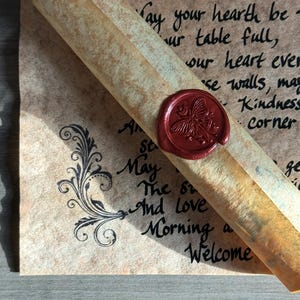 May your hearth be
your table full,
your heart ever
se walls, may
Kindness
corner
May
The
And love
Morning
Welcome